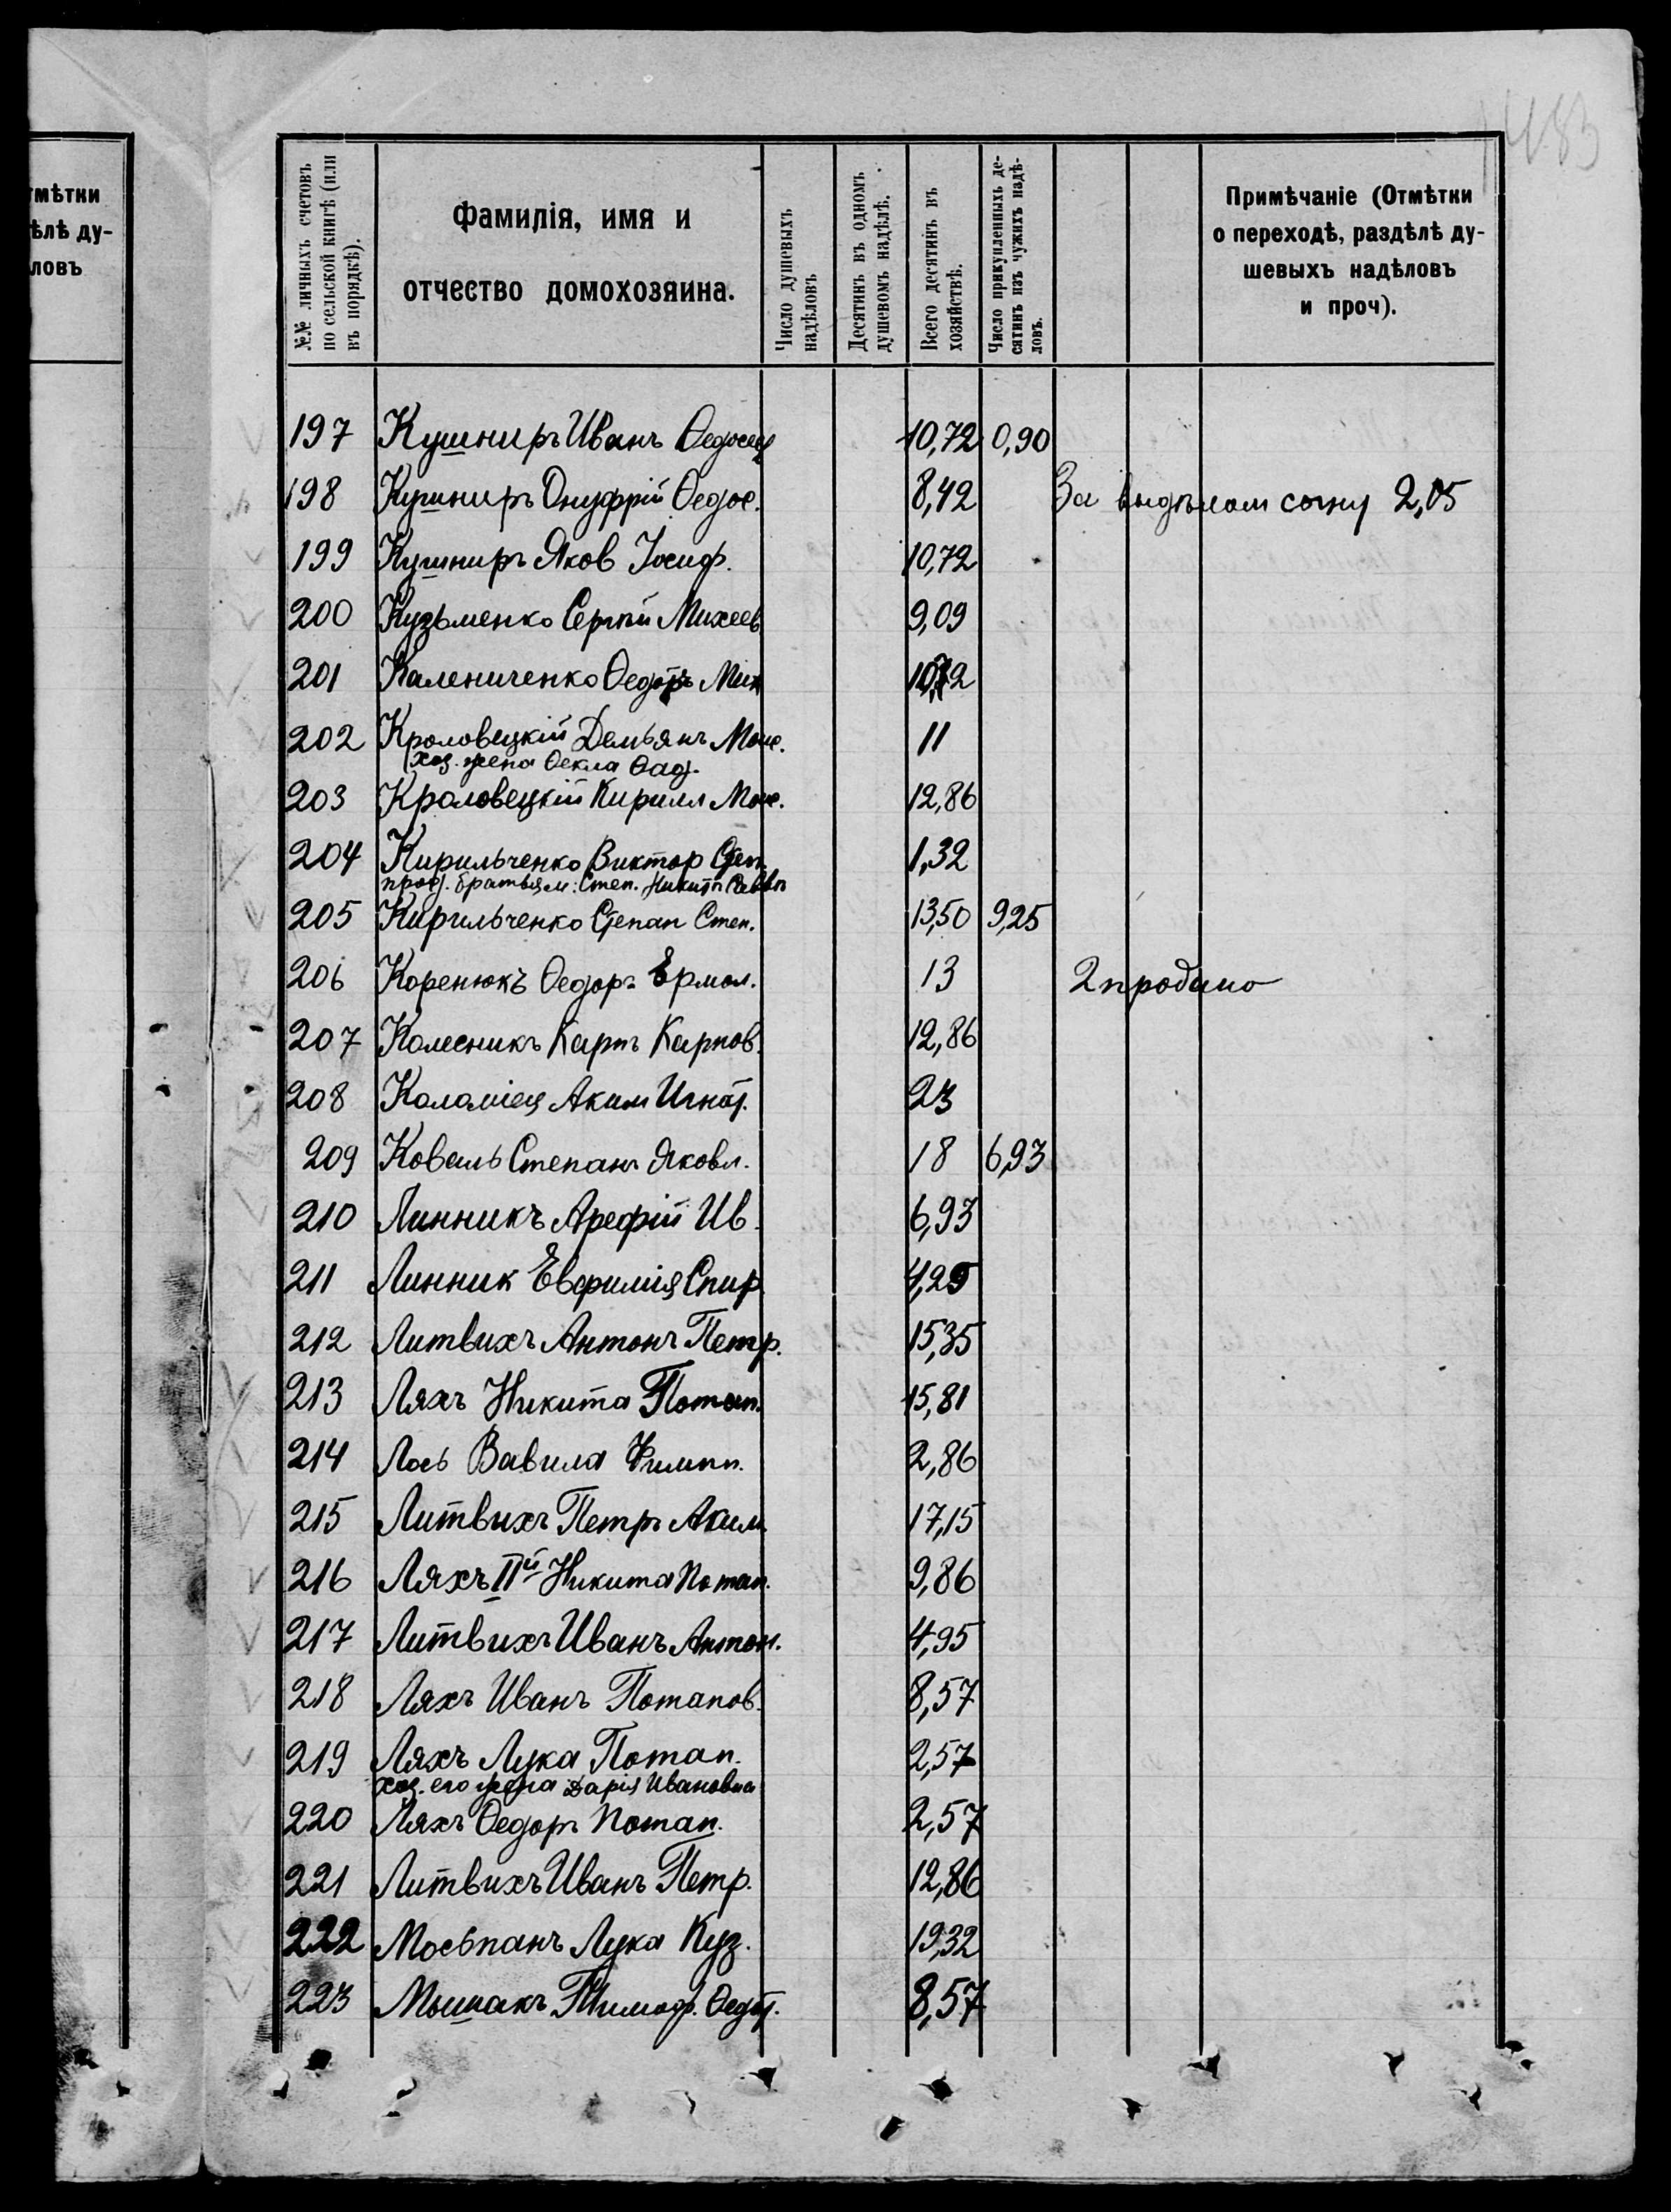 мѣтки
ѣлѣ ду-
ловъ
483
№№ личныхъ счетовъ по сельской книгѣ (или въ порядкѣ).
Фамилія, имя и
отчество домохозяина.
Число душевыхъ надѣловъ
Десятинъ въ одномъ душевомъ надѣлѣ.
Всего десятинъ въ хозяйствѣ.
Число прикупленныхъ де-сятинъ изъ чужихъ надѣ-ловъ.
Примѣчаніе (Отмѣтки
о переходѣ, раздѣлѣ ду-
шевыхъ надѣловъ
и проч).
197 Кушниръ Иванъ Ѳедосеев 10,72 0,90
198 Кушниръ Онуфрій Ѳедос. 8,42 За выдѣлом сыну 2,05
199 Кушниръ Яков Іосиф. 10,72
200 Кузьменко Сергѣй Михеев 9,09
201 Калениченко Ѳедотъ Мих 10,72
202 Кроловецкій Демьянъ Моис. 11
хоз. жена Ѳекла Ѳад.
203 Кроловецкій Кирилл Моис. 12,86
204 Кирильченко Виктор Степ. 1,32
прод. братьям: Степ. Никитѣ Саввѣ
205 Кирильченко Степан Степ. 13,50 9,25
206 Коренюкъ Ѳедоръ Ермол. 13 2 продано
207 Колесникъ Карпъ Карпов. 12,86
208 Коломіец Аким Игнат. 23
209 Коваль Степанъ Яковл. 18 6,93
210 Линникъ Арефій Ив. 6,93
211 Линник Евфимія Спир 4,25
212 Литвихъ Антонъ Петр. 15,35
213 Ляхъ Никита Потап. 15,81
214 Лось Вавила Филип. 2,86
215 Литвихъ Петръ Аким. 17,15
216 Ляхъ IIй Никита Потап. 9,86
217 Литвихъ Иванъ Антон. 4,95
218 Ляхъ Иванъ Потапов. 8,57
219 Ляхъ Лука Потап. 2,57
хоз. его жена Дарія Ивановна
220 Ляхъ Ѳедоръ Потап. 2,57
221 Литвихъ Иванъ Петр. 12,86
222 Мосьпанъ Лука Куз. 19,32
223 Мышакъ Тимоф. Ѳедот. 8,57